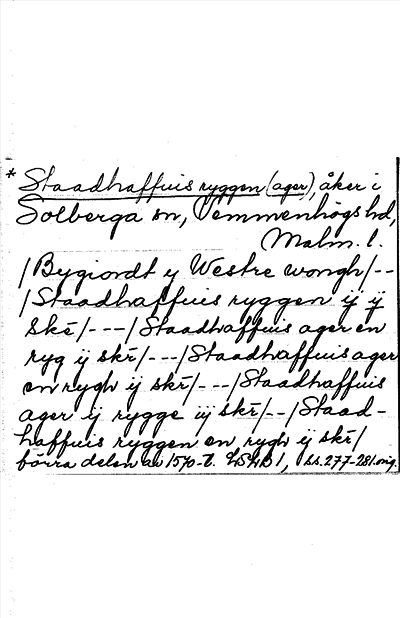 * Staadhaffuis ryggen (ager), åker i
Solberga sn, Vemmenhögs hd,
Malm. l.
/Bygiordt y Westre wongh/--
/Staadhaffuis ryggen ij ij
skē/---/Staadhaffuis ager en
ryg ij skē/---/Staadhaffuis ager
en rygh ij skē/---/Staadhaffuis
ager ij rygge iij skē/--/Staad-
haffuis ryggen en rygh ij skē/
förra delen av 1570-t. LSJLB 1, ss. 277-281 orig.